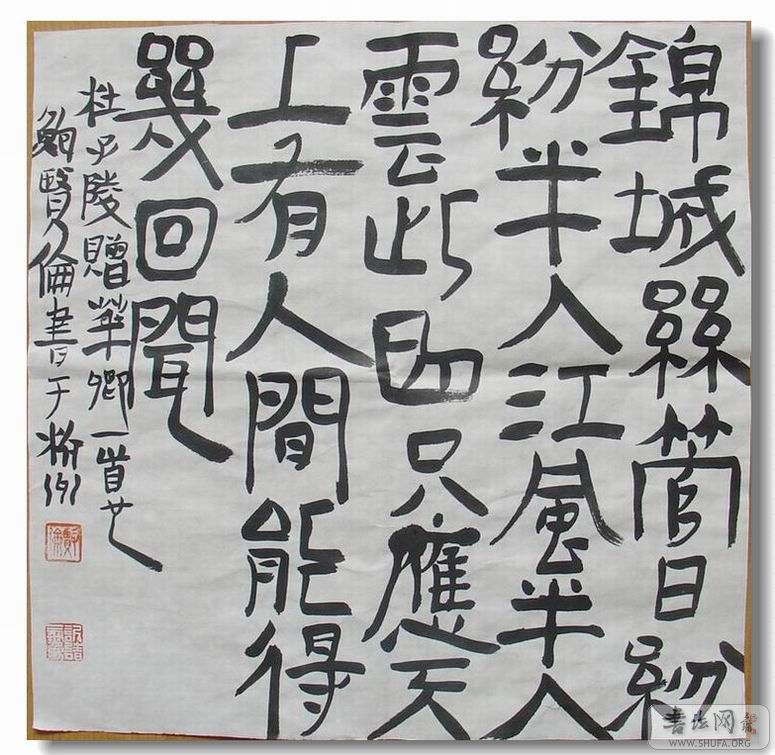 錦城絲管日紛
紛半入江風半入
雲此曲只應天
上有人間能得
幾回聞
杜少陵贈華卿一首也
鮑賢倫書于州
书法网
WWW.SHUFA.ORG